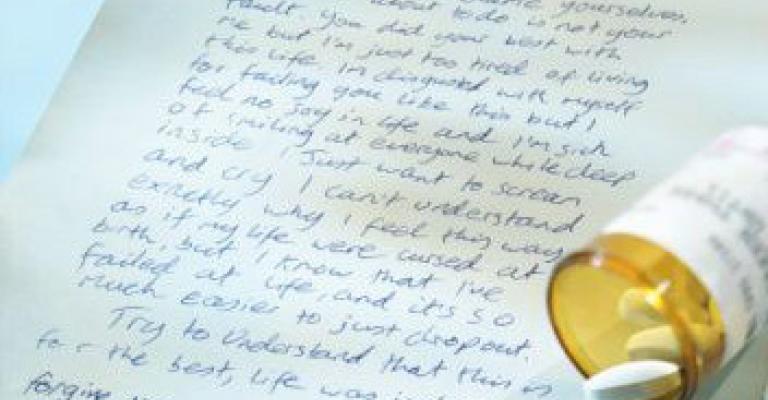 yourselves.
about to do is not your
fault. You did your best with
me but I'm just too tired of living
this life. I'm disgusted with myself
for failing you like this but I
feel no joy in life and I'm sick
of smiling at everyone while deep
inside I just want to scream
and cry. I can't understand
exactly why I feel this way,
as if my life were cursed at
birth, but I know that I've
failed at life, and it's so
much easier to just dropout.
Try to understand that this is
for the best, life was
forgive